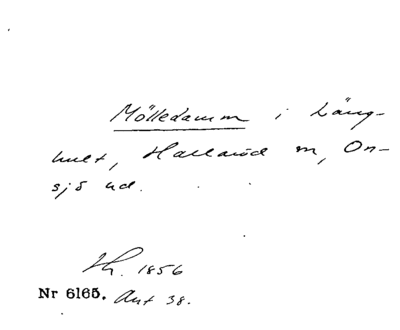 Mölledamm i Läng-
hult, Hallaröd m, On-
sjö hd.
Th. 1856
Nr 6165. Ant 38.